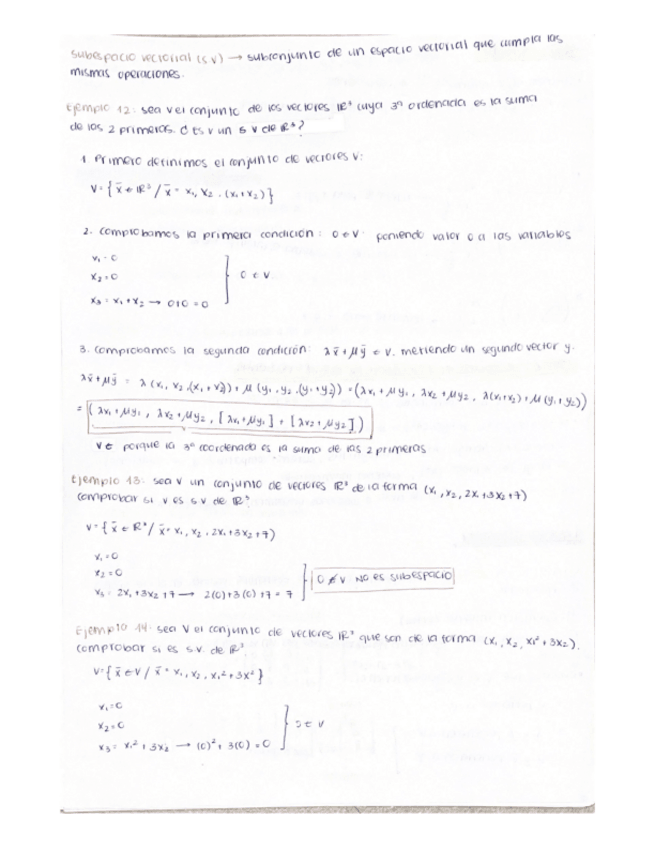 Subespacio vectorial (s v) → subconjunto de un espacio vectorial que cumpla las
mismas operaciones.
Ejemplo 12: sea V el conjunto de los vectores ℝ³ cuya 3ª ordenada es la suma
de los 2 primeros. ¿Es V un s v de ℝ³?
1 Primero definimos el conjunto de vectores V:
V = { x̄ ∈ ℝ³ / x̄ = x₁, x₂, (x₁+x₂) }
2. Comprobamos la primera condición: 0 ∈ V poniendo valor 0 a las variables
x₁ = 0
x₂ = 0 } 0 ∈ V
x₃ = x₁ + x₂ → 0+0 = 0
3. Comprobamos la segunda condición: λx̄ + μȳ ∈ V. metiendo un segundo vector y.
λx̄ + μȳ = λ(x₁, x₂, (x₁+x₂)) + μ(y₁, y₂, (y₁+y₂)) = (λx₁ + μy₁, λx₂ + μy₂, λ(x₁+x₂) + μ(y₁+y₂))
= (λx₁ + μy₁, λx₂ + μy₂, [λx₁ + μy₁] + [λx₂ + μy₂])
V ∈ porque la 3ª coordenada es la suma de las 2 primeras
Ejemplo 13: sea V un conjunto de vectores ℝ³ de la forma (x₁, x₂, 2x₁+3x₂+7)
comprobar si V es s.v de ℝ³
V = { x̄ ∈ ℝ³ / x̄ = x₁, x₂, 2x₁+3x₂+7)
x₁ = 0
x₂ = 0 } 0 ∉ V NO es subespacio
x₃ = 2x₁ + 3x₂ + 7 → 2(0)+3(0)+7 = 7
Ejemplo 14: sea V el conjunto de vectores ℝ³ que son de la forma (x₁, x₂, x₁² + 3x₂).
comprobar si es s.v. de ℝ³
V = { x̄ ∈ V / x̄ = x₁, x₂, x₁² + 3x² }
x₁ = 0
x₂ = 0 } ∈ V
x₃ = x₁² + 3x₂ → (0)² + 3(0) = 0